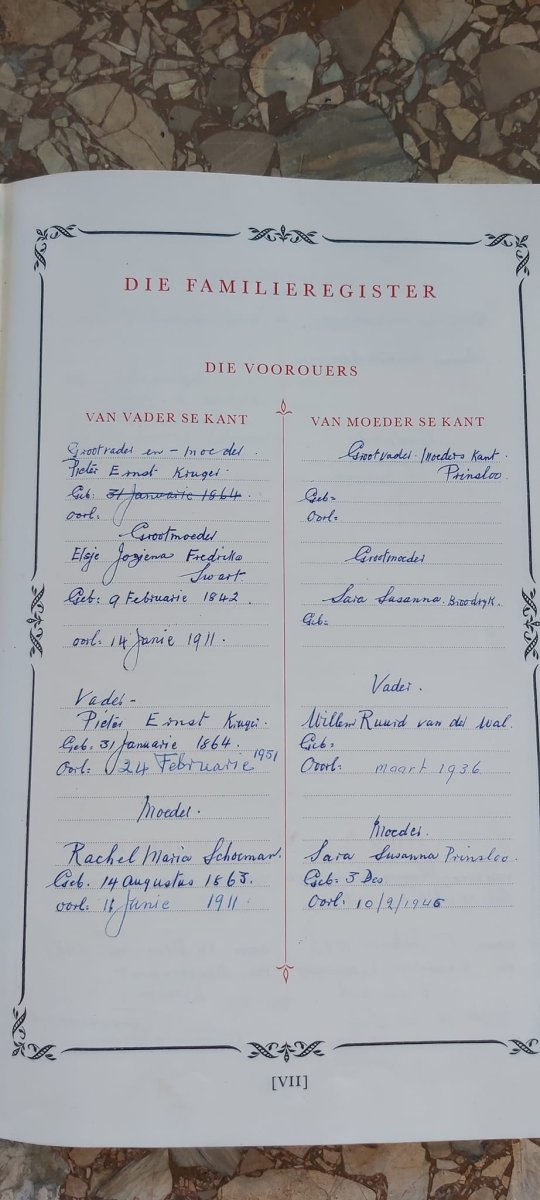 DIE FAMILIEREGISTER
DIE VOOROUERS
VAN VADER SE KANT
Grootvader en - moeder.
Pieter Ernst Kruger.
Geb: 31 Januarie 1864.
oorl:
Grootmoeder
Elsje Joziena Fredrika
Swart
Geb: 9 Februarie 1842.
oorl: 14 Junie 1911.
Vader -
Pieter Ernst Kruger.
Geb: 31 Januarie 1864.
Oorl: 24 Februarie 1951
Moeder.
Rachel Maria Schoeman.
Geb. 14 Augustus 1863.
oorl: Junie 1911
VAN MOEDER SE KANT
Grootvader. Moeders Kant.
Prinsloo.
Geb=
Oorl=
Grootmoeder
Sara Susanna. Broodryk.
Geb=
Vader.
Willem Ruurd van der Wal.
Geb:
Oorl: maart 1936
Moeder.
Sara Susanna Prinsloo.
Geb: 3 Des
Oorl: 10/2/1946
[VII]